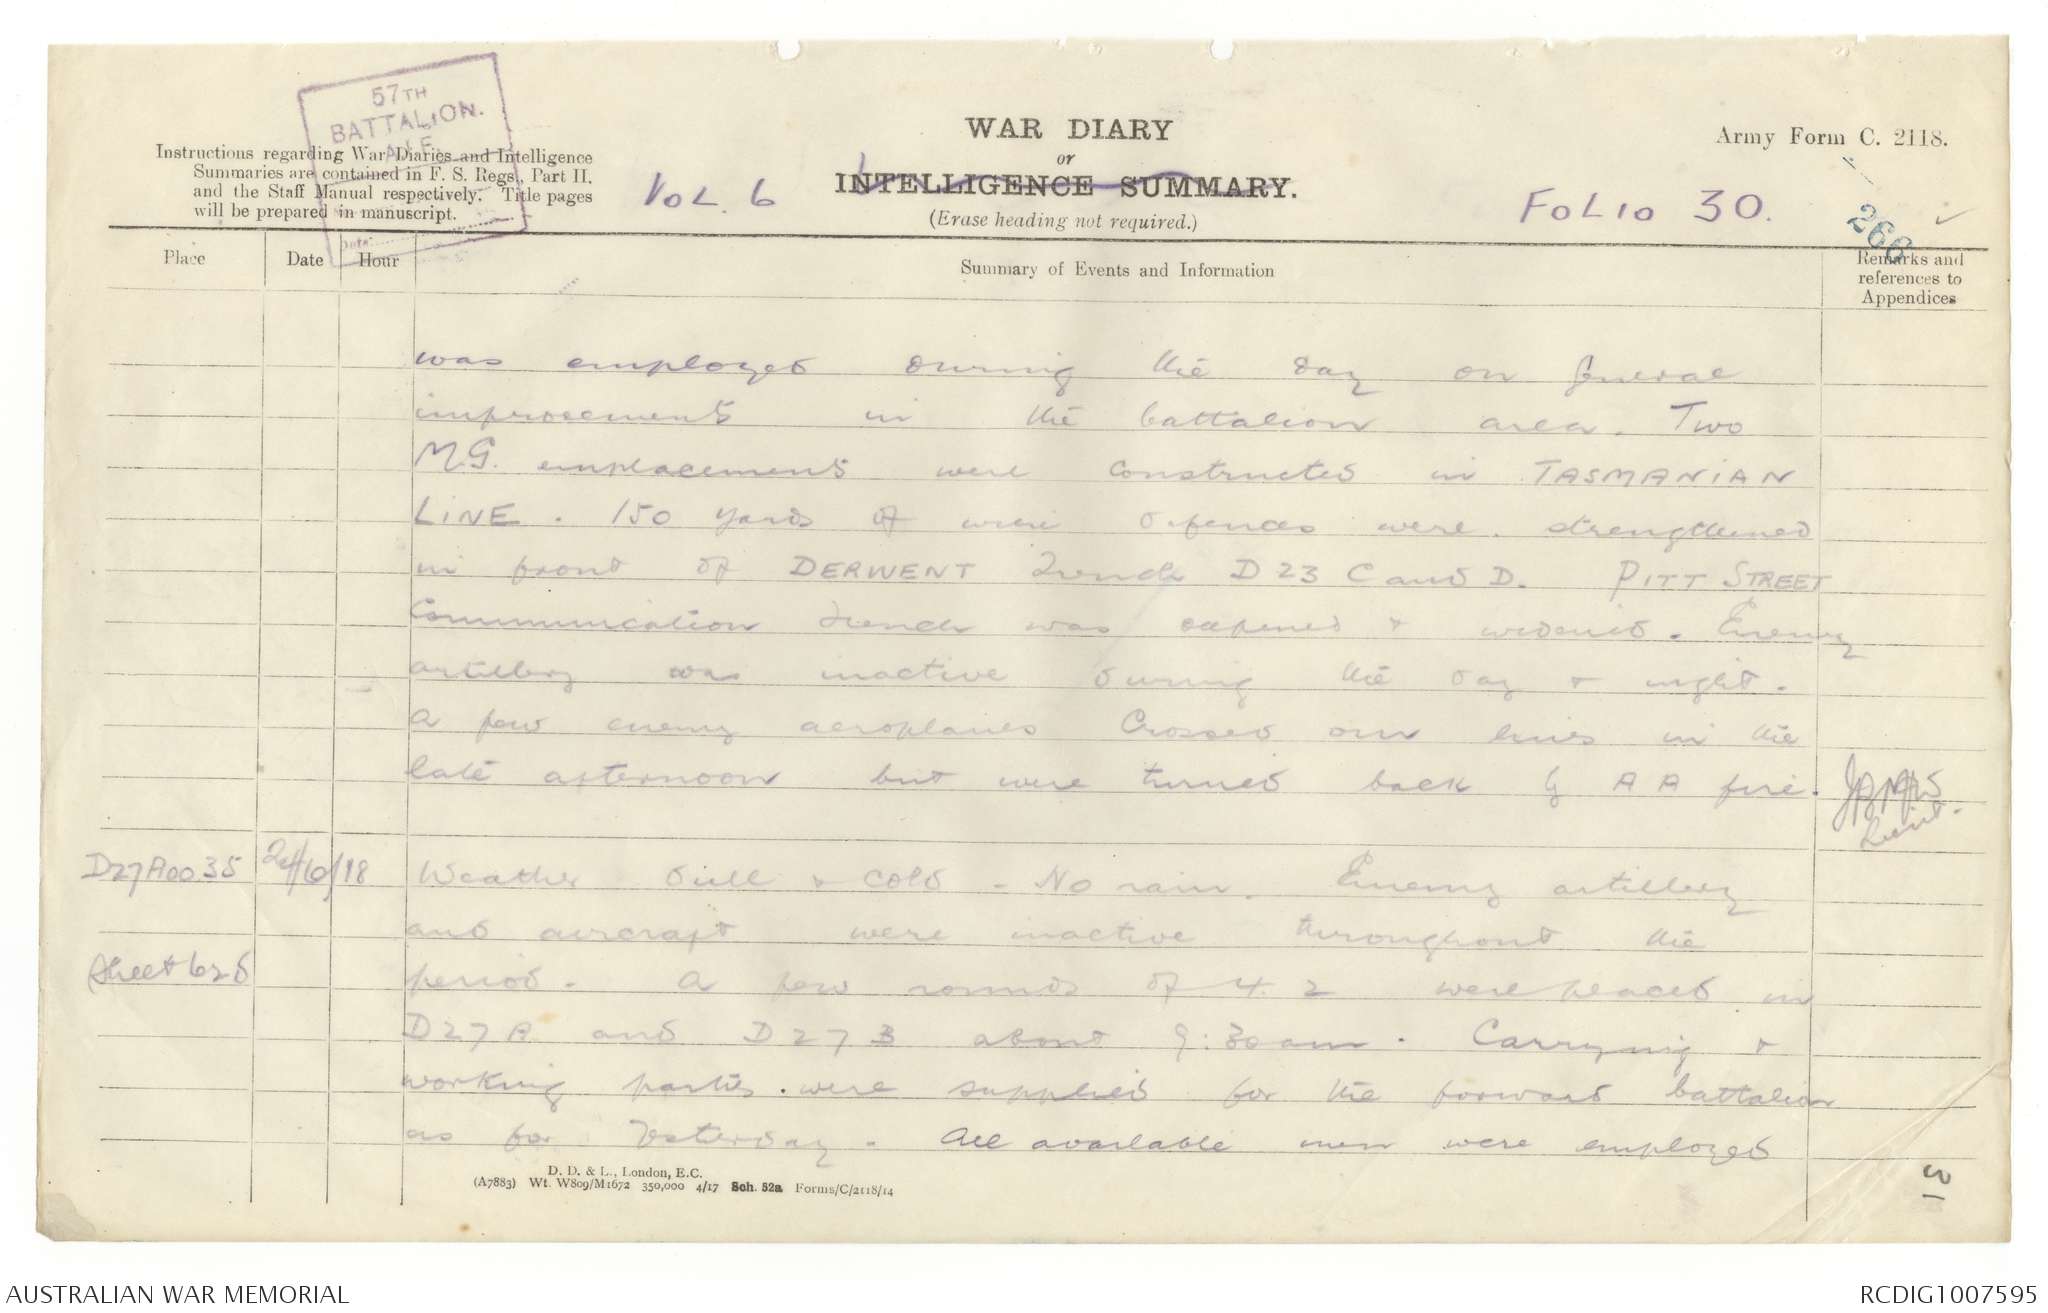 57TH
BATTALION.
A.I.F.
Date
Instructions regarding War Diaries and Intelligence
Summaries are contained in F. S. Regs., Part II.
and the Staff Manual respectively. Title pages
will be prepared in manuscript.
VOL. 6
WAR DIARY
or
INTELLIGENCE SUMMARY.
(Erase heading not required.)
Army Form C. 2118.
FOLIO 30.
266
Place
Date
Hour
Summary of Events and Information
Remarks and
references to
Appendices
was employed during the day on general
improvements in the battalion area. Two
M.G. emplacements were constructed in TASMANIAN
LINE. 150 yards of wire defences were strengthened
in front of DERWENT Trench D23 C and D. PITT STREET
Communication trench was deepened & widened. Enemy
artillery was inactive during the day & night.
A few enemy aeroplanes crossed our lines in the
late afternoon but were turned back by A A fire.
Lieut.
D27A0035 24/6/18 Weather dull & cold - No rain. Enemy artillery
and aircraft were inactive throughout the
Sheet 62d period. A few rounds of 4.2 were placed in
D27A and D27B about 9:30am. Carrying &
working parties were supplied for the forward battalion
as for Yesterday. All available men were employed
D. D. & L., London, E.C.
(A7883) Wt. W809/M1672 350,000 4/17 Sch. 52a Forms/C/2118/14
31
AUSTRALIAN WAR MEMORIAL
RCDIG1007595